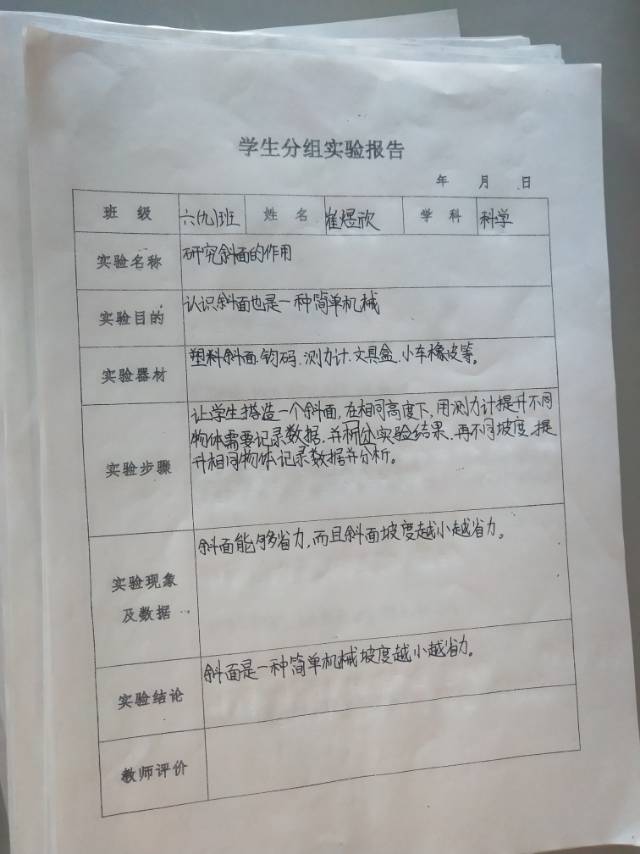 学生分组实验报告
年 月 日
班 级 六(九)班 姓 名 崔煜欣 学 科 科学
实验名称 研究斜面的作用
实验目的 认识斜面也是一种简单机械
实验器材 塑料斜面.钩码.测力计.文具盒.小车橡皮等。
实验步骤 让学生搭造一个斜面,在相同高度下,用测力计提升不同
物体需要记录数据.并析分实验结果.再不同坡度.提
升相同物体记录数据并分析。
实验现象 斜面能够省力,而且斜面坡度越小越省力。
及数据
实验结论 斜面是一种简单机械坡度越小越省力。
教师评价